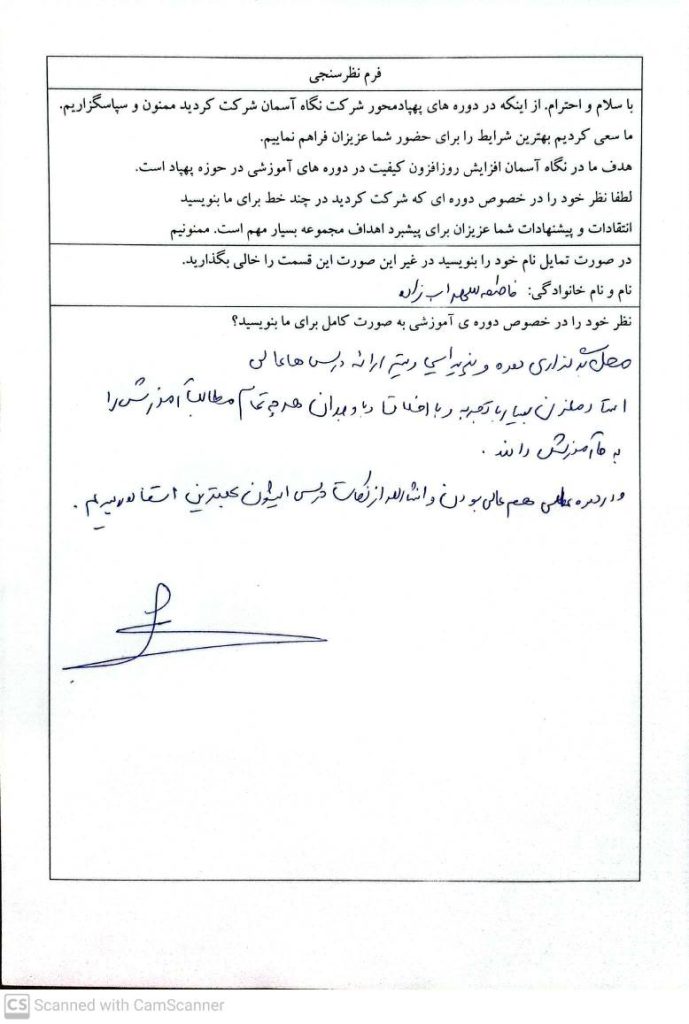 فرم نظرسنجی
با سلام و احترام. از اینکه در دوره های پهپادمحور شرکت نگاه آسمان شرکت کردید ممنون و سپاسگزاریم.
ما سعی کردیم بهترین شرایط را برای حضور شما عزیزان فراهم نماییم.
هدف ما در نگاه آسمان افزایش روزافزون کیفیت در دوره های آموزشی در حوزه پهپاد است.
لطفا نظر خود را در خصوص دوره ای که شرکت کردید در چند خط برای ما بنویسید
انتقادات و پیشنهادات شما عزیزان برای پیشبرد اهداف مجموعه بسیار مهم است. ممنونیم
در صورت تمایل نام خود را بنویسید در غیر این صورت این قسمت را خالی بگذارید.
نام و نام خانوادگی: فاطمه سهراب زاده
نظر خود را در خصوص دوره ی آموزشی به صورت کامل برای ما بنویسید؟
محل برگذاری دوره و پذیرایی و تیم ارائه درس ها عالی
استاد بسیار با تجربه و با اخلاق و با وجدان هر چه تمام مطالب آموزش را
به ما آموزش دادند.
و در دوره عملی هم عالی بودن و انشاالله از نکات درسی ایشون بهترین استفاده رو ببریم.
CS Scanned with CamScanner